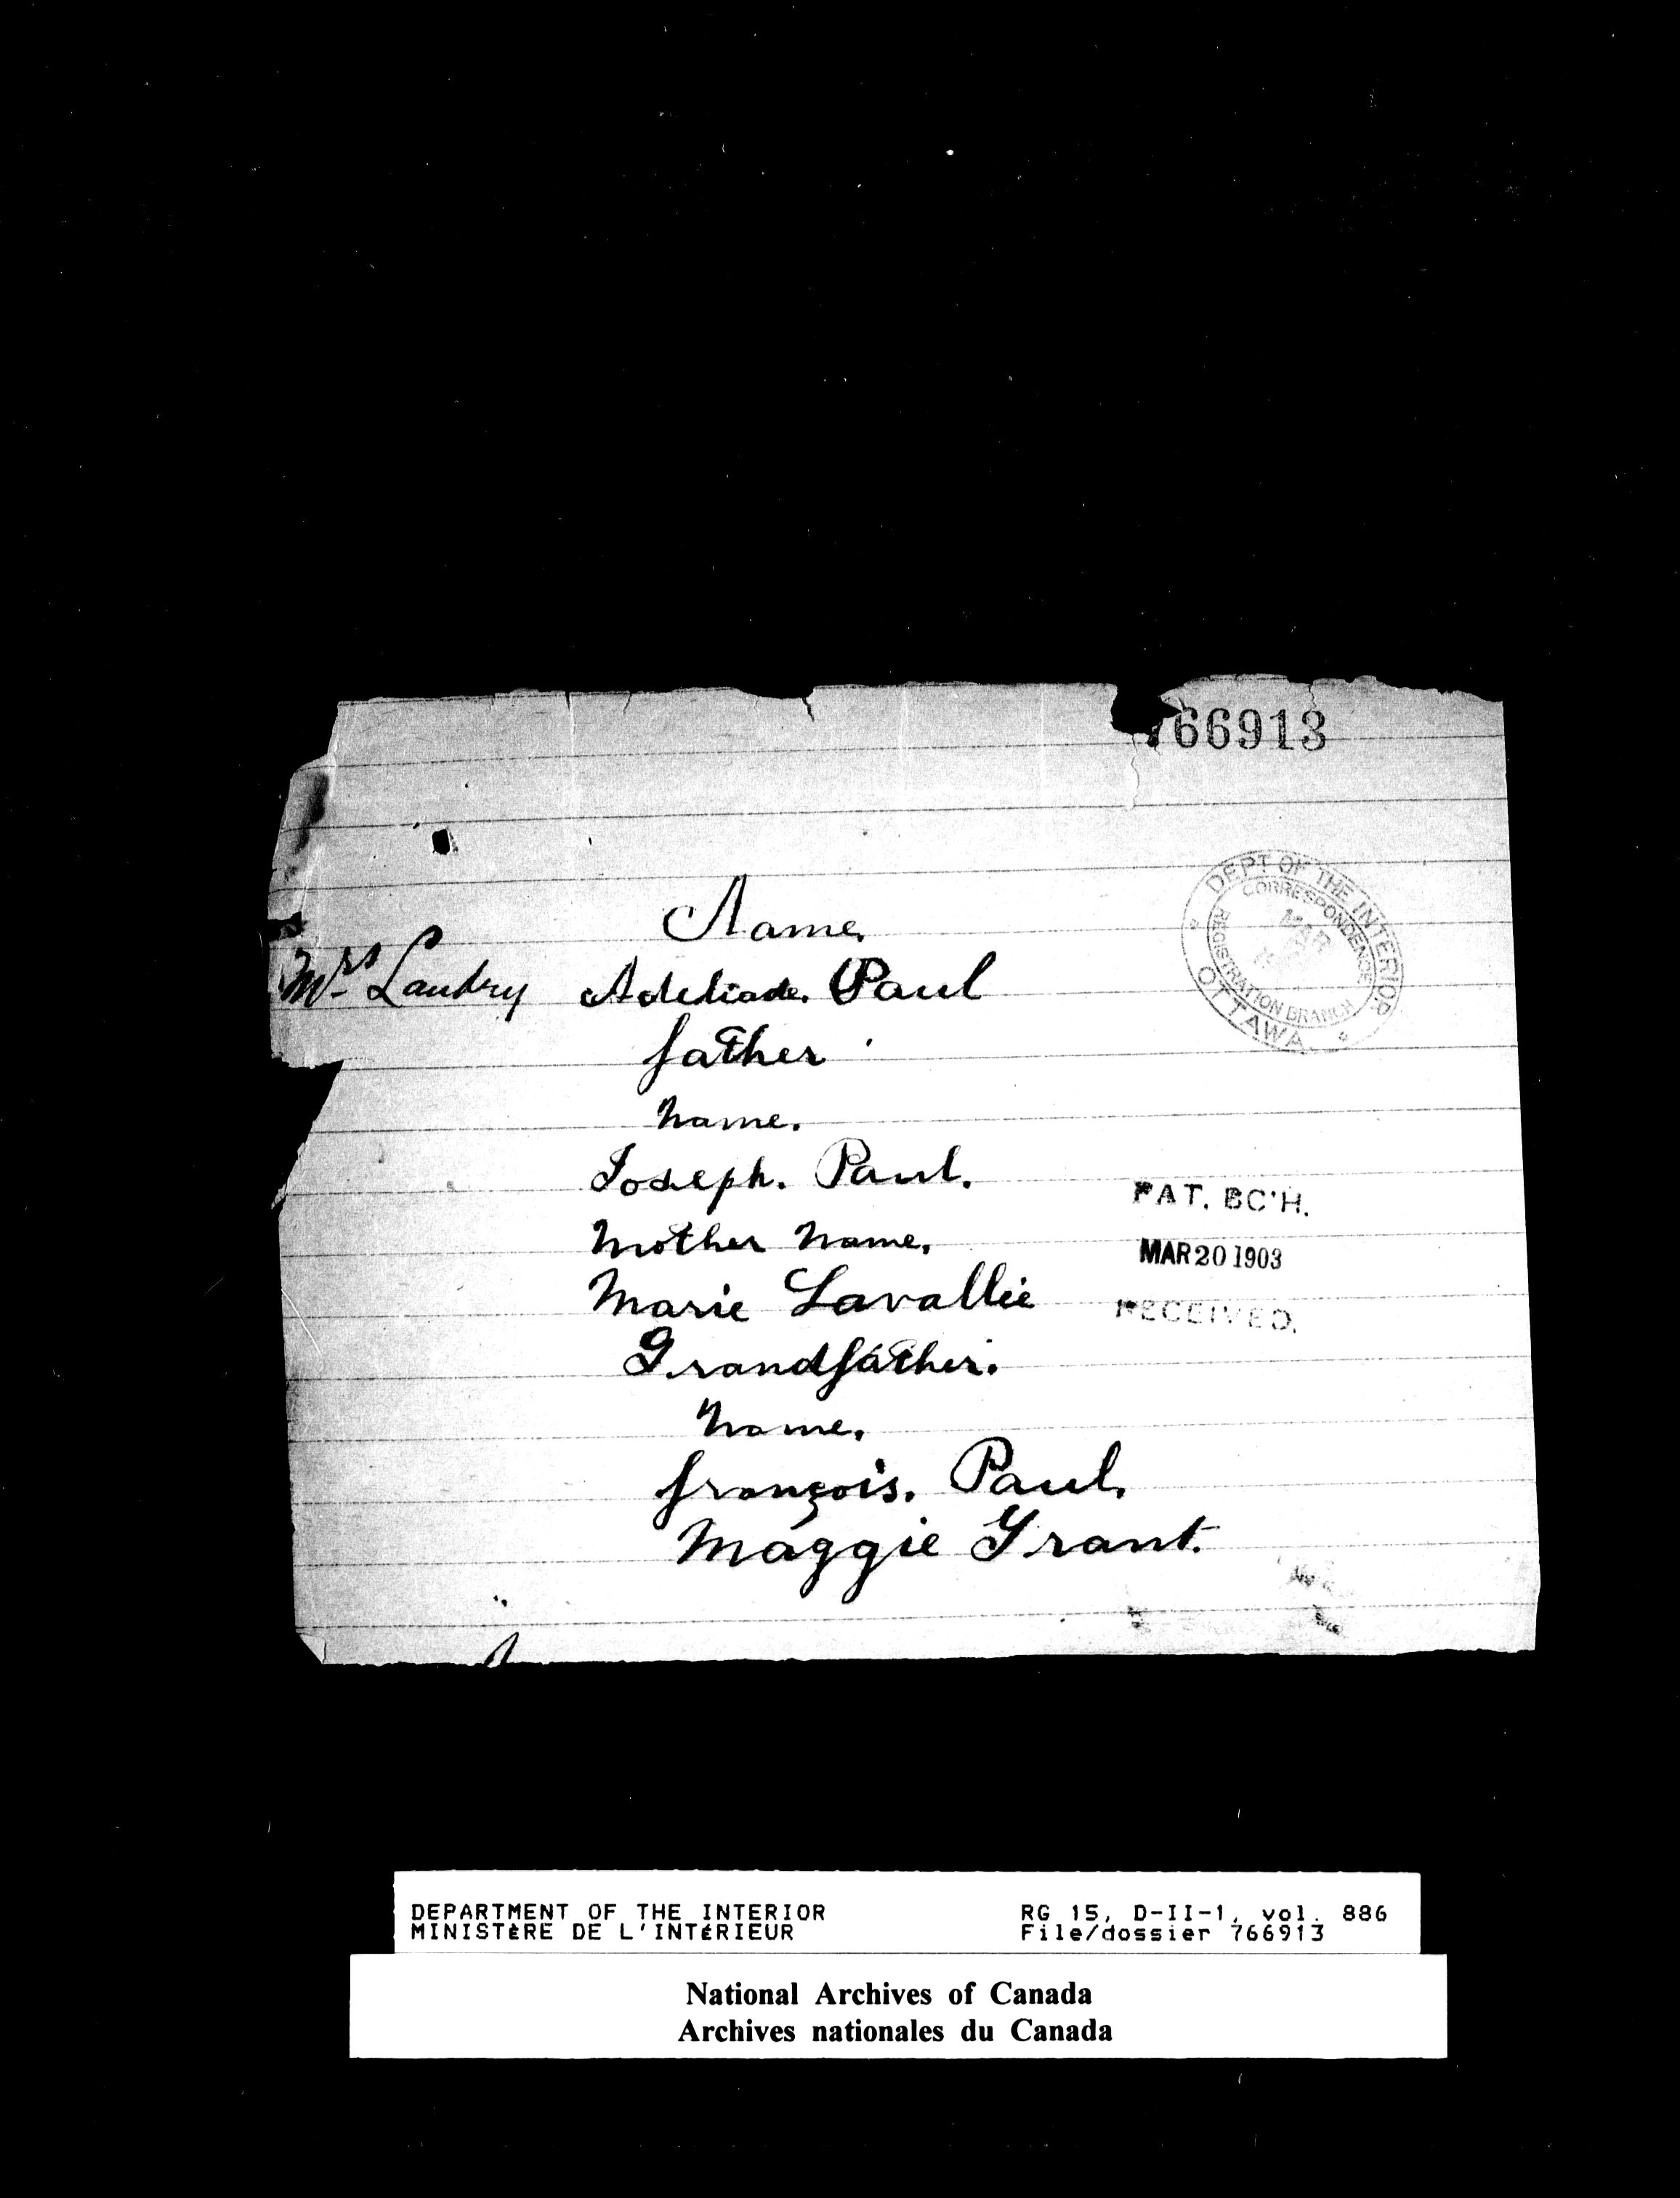 766913
DEPT OF THE INTERIOR
CORRESPONDENCE
MAR
REGISTRATION BRANCH
OTTAWA
Name
Mrs Landry Adeliade. Paul
father
name.
Joseph. Paul.
PAT. BC'H.
mother name.
MAR 20 1903
Marie Lavallie
RECEIVED.
Grandfather.
name.
françois. Paul.
Maggie Grant.
DEPARTMENT OF THE INTERIOR RG 15, D-II-1, vol. 886
MINISTÈRE DE L'INTÉRIEUR File/dossier 766913
National Archives of Canada
Archives nationales du Canada